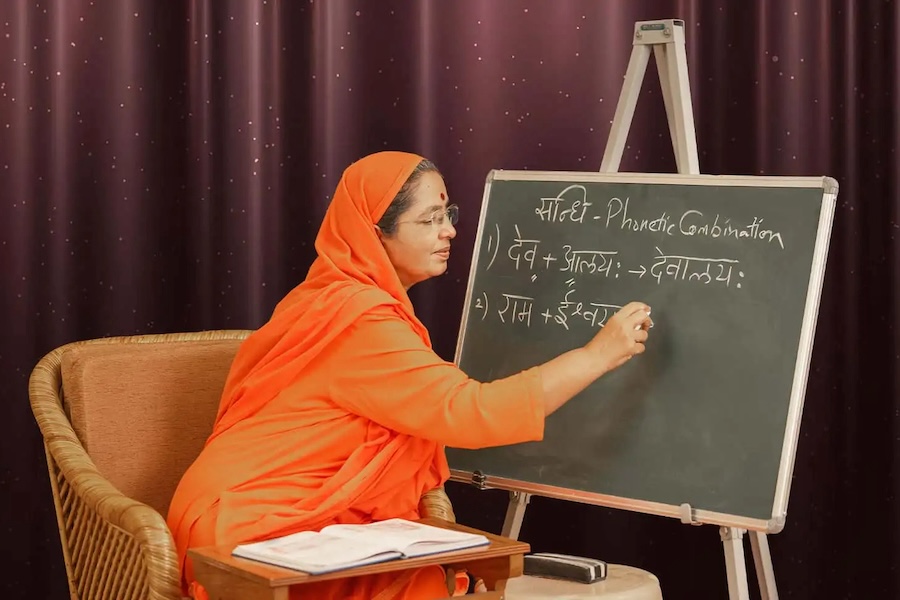 सन्धि - Phonetic Combination
1) देव + आलयः → देवालयः
2) राम + ईश्वर